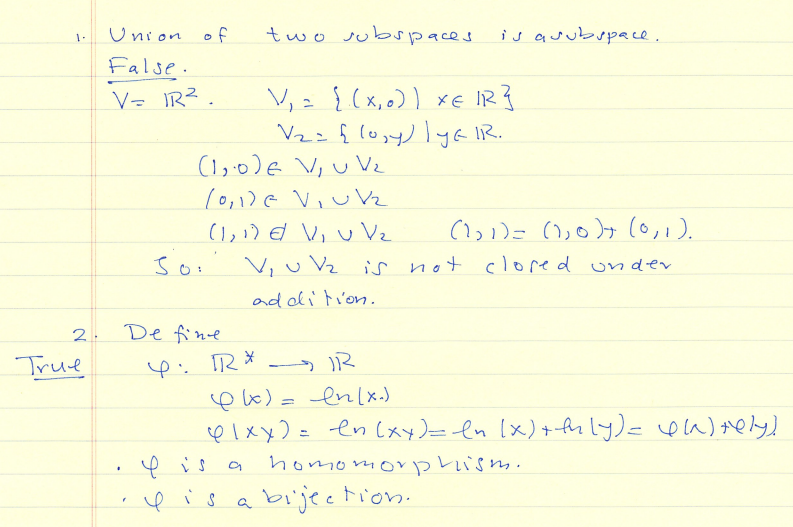 1. Union of two subspaces is a subspace.
False.
V = ℝ². V₁ = { (x,0) | x ∈ ℝ }
V₂ = { (0,y) | y ∈ ℝ.
(1,0) ∈ V₁ ∪ V₂
(0,1) ∈ V₁ ∪ V₂
(1,1) ∉ V₁ ∪ V₂ (1,1) = (1,0) + (0,1).
So: V₁ ∪ V₂ is not closed under
addition.
2. Define
True φ: ℝ* → ℝ
φ(x) = ln(x)
φ(xy) = ln(xy) = ln(x) + ln(y) = φ(x) + φ(y)
. φ is a homomorphism.
. φ is a bijection.